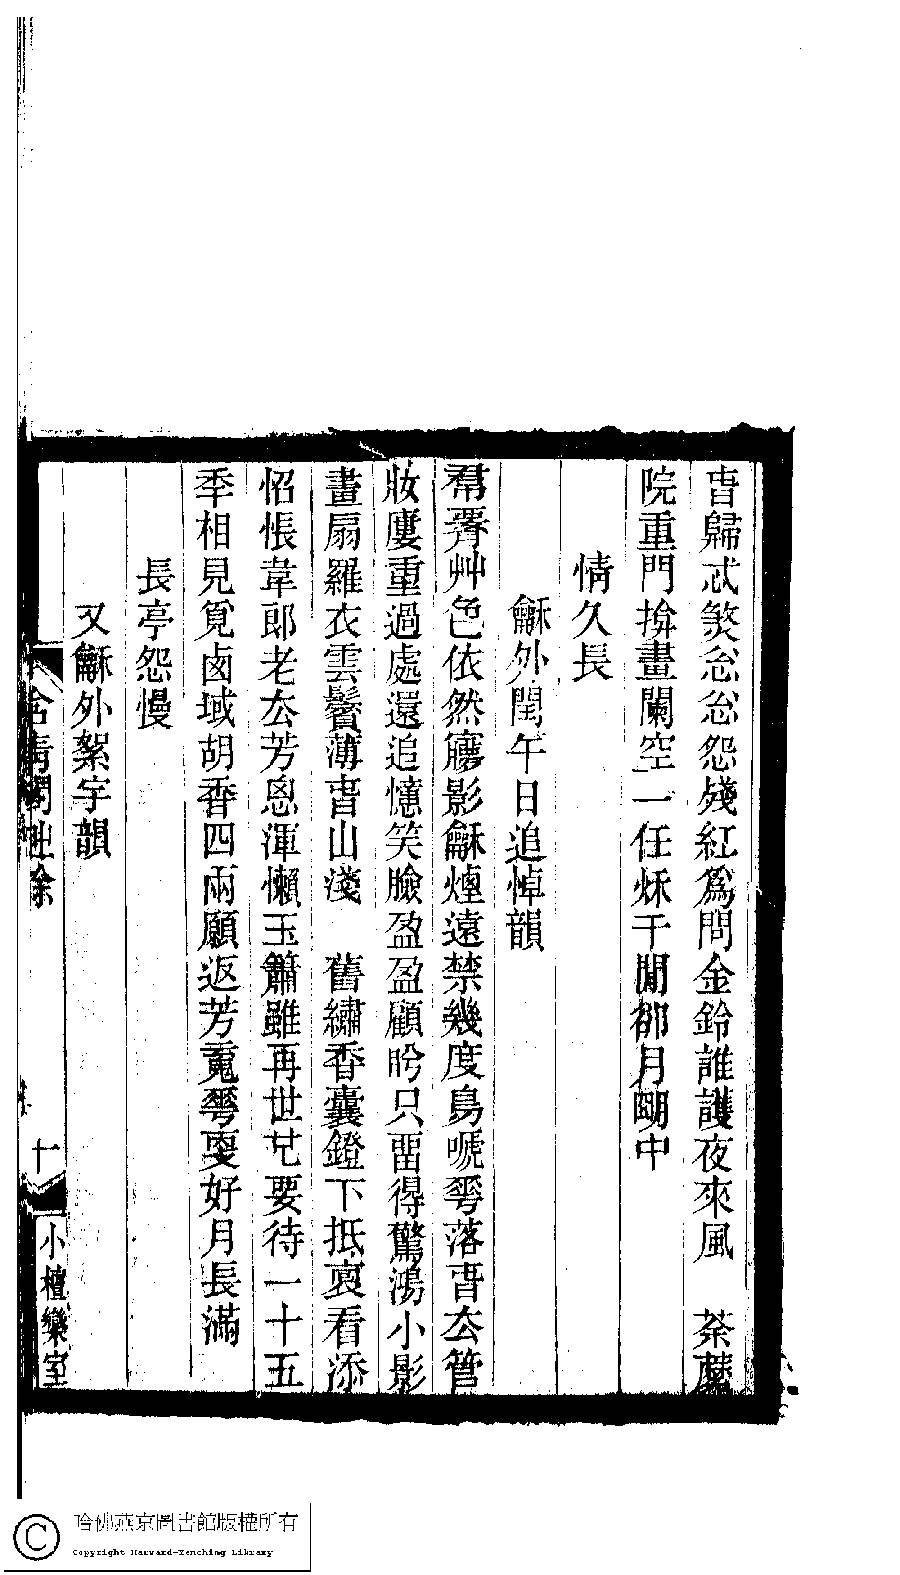 旾歸忒煞怱怱怨殘紅爲問金鈴誰護夜來風　荼䕷
院重門揜畫闌空一任秌千閒卻月朙中
情久長
龢外閏午日追悼韻
帬䙱艸色依然寱影龢煙遠禁幾度鳥嗁䔢落旾去管
妝廔重過處還追憶笑臉盈盈顧盻只畱得驚鴻小影
畫扇羅衣雲鬢薄旾山淺　舊繡香囊鐙下抵裏看添
怊悵韋郎老去芳恩渾懶玉簫雖再世𠀍要待一十五
秊相見覓鹵域胡香四兩願返芳䰟䔢㪅好月長滿
長亭怨慢
又龢外絮字韻
含青閣詩餘
十
小檀欒室
哈佛燕京圖書館版權所有
Copyright Harvard-Yenching Library